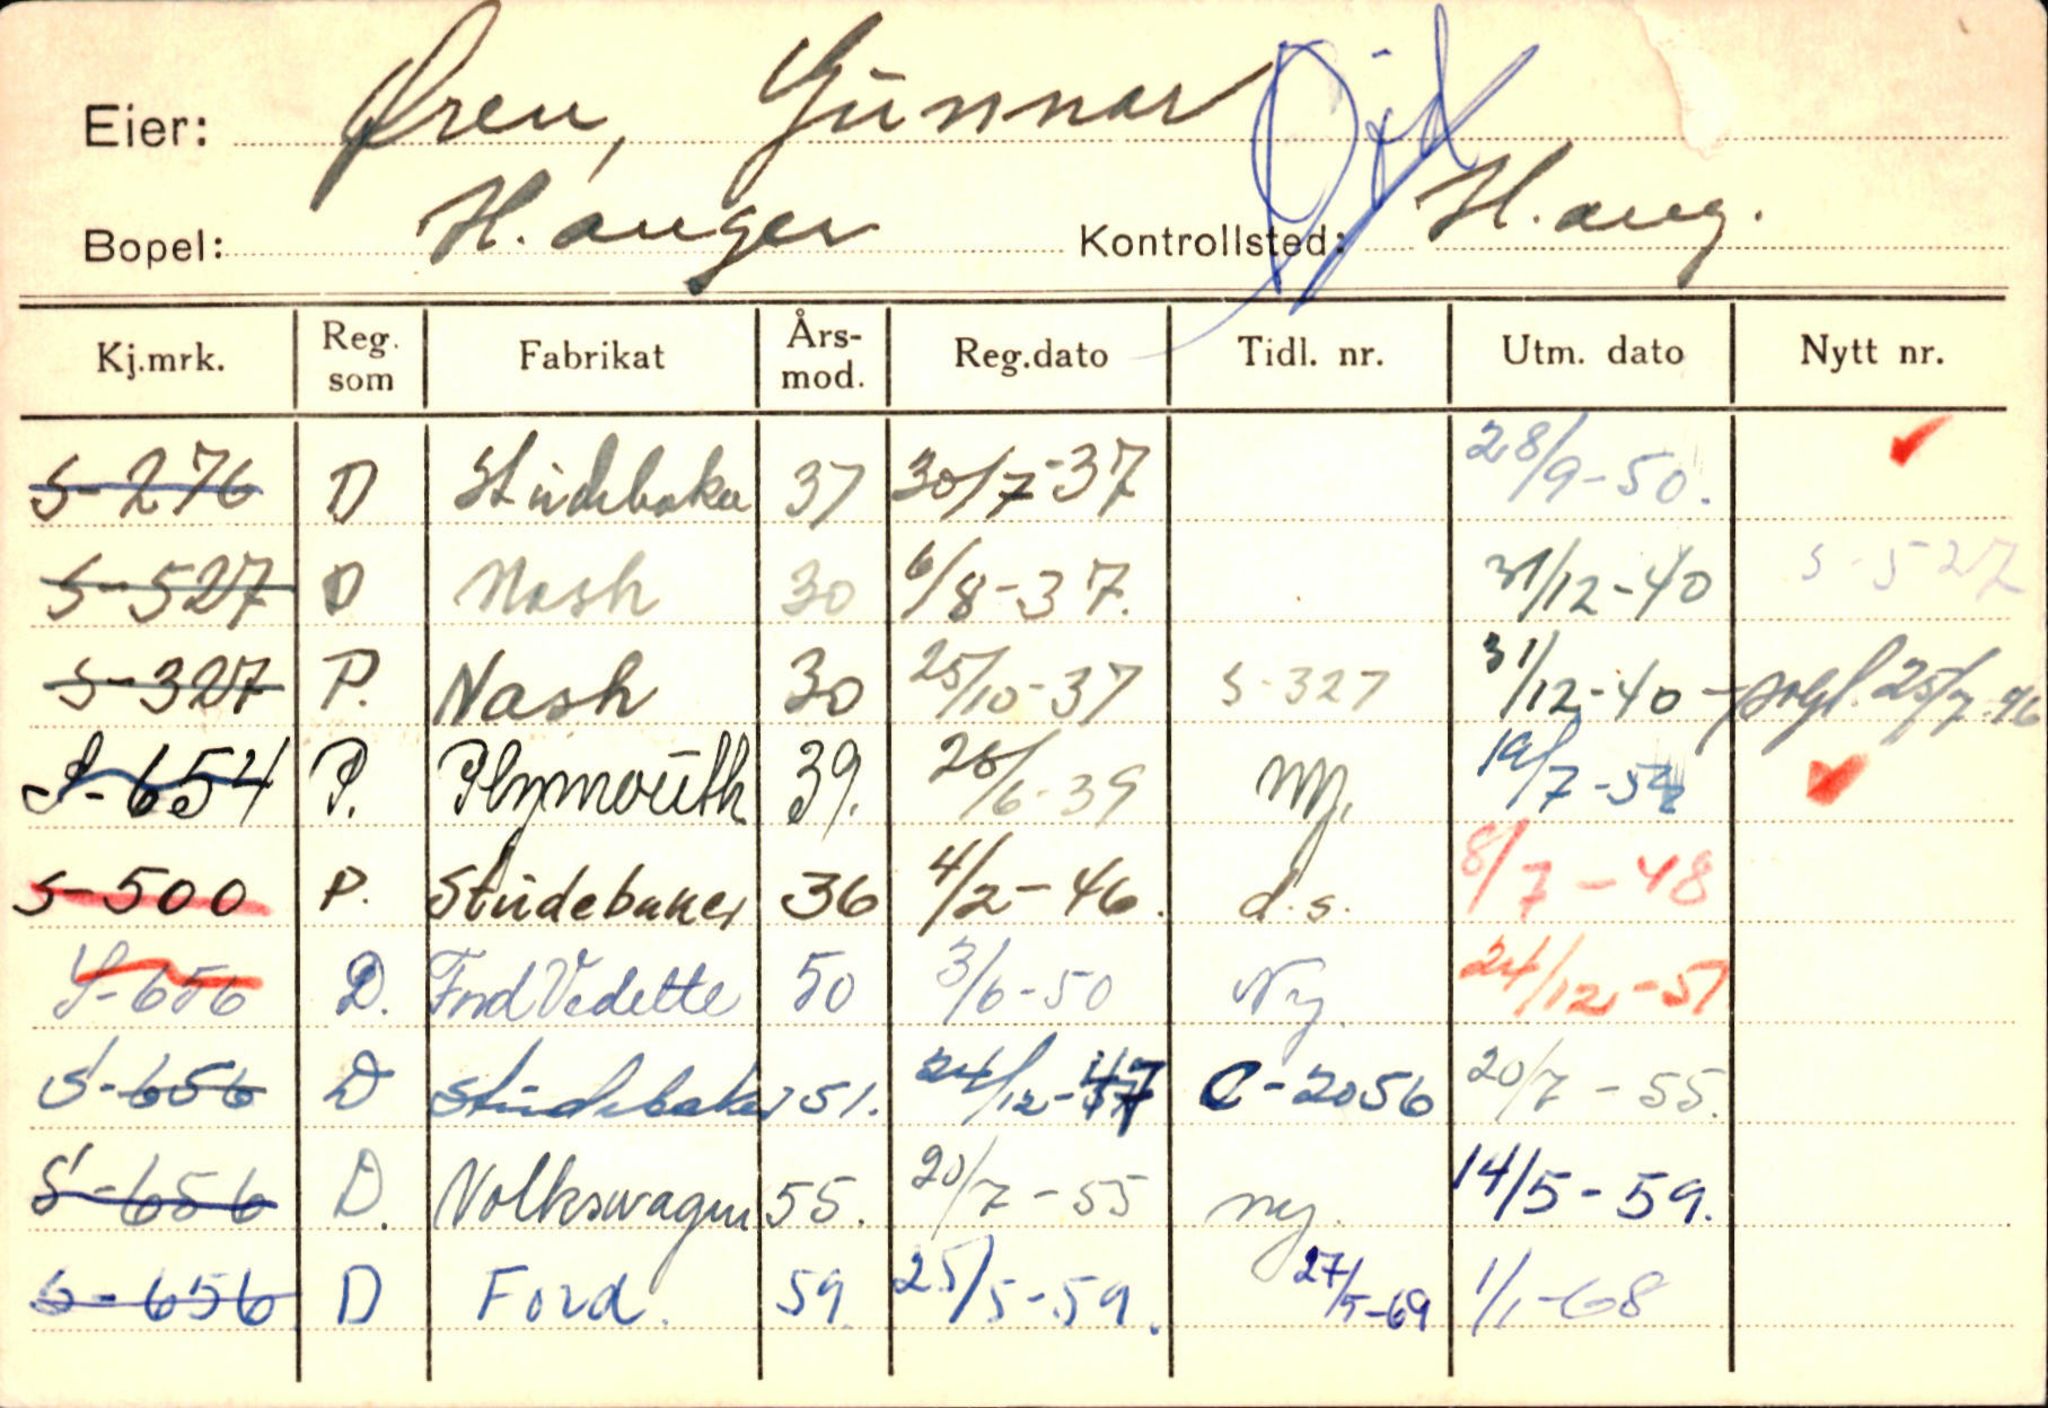 Eier: Øren, Gunnar Død
Bopel: H.anger Kontrollsted: H.ang.
Kj.mrk. Reg. som Fabrikat Års-mod. Reg.dato Tidl. nr. Utm. dato Nytt nr.
S-276 D Studebaker 37 30/7-37 28/9-50. ✓
S-527 D Nash 30 6/8-37. 31/12-40 S-527
S-327 P. Nash 30 25/10-37 S-327 31/12-40 - 25/7-46
S-654 P. Plymouth 39. 28/6-39 ny. 19/7-52 ✓
S-500 P. Studebaker 36 4/2-46. d.s. 8/7-48
S-656 D. Ford Vedette 50 3/6-50 Ny. 24/12-57
S-656 D Studebaker 51. 24/12-57 C-2056 20/7-55.
S-656 D. Volkswagen 55. 20/7-55 ny. 14/5-59.
S-656 D Ford. 59. 25/5-59. 27/5-69 1/1-68